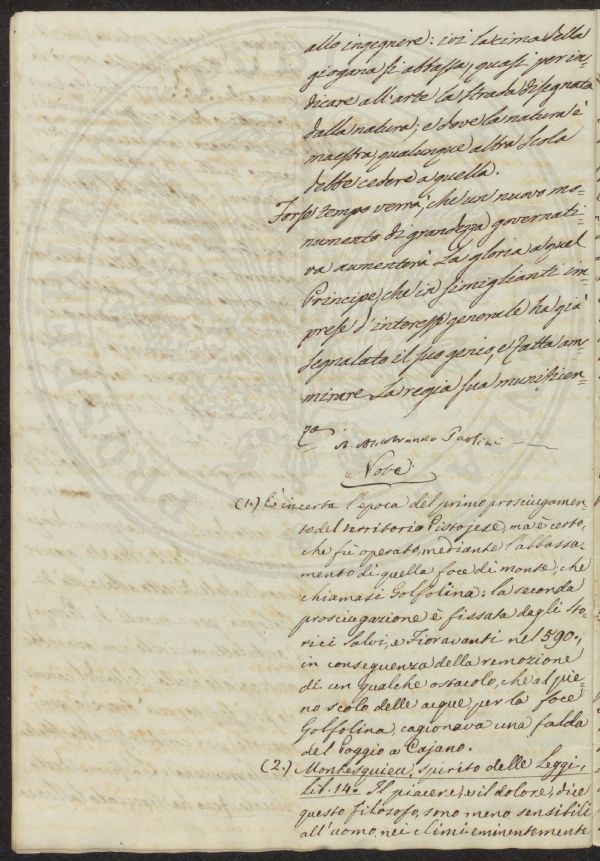 allo ingegnere: ivi la cima della
giogana si abbassa, quasi per in=
dicare all'arte la strada disegnata
dalla natura; e dove la natura è
maestra, qualunque altra scola
debbe cedere a quella.
Forse tempo verrà, che un nuovo mo=
numento di grandezza governati=
va aumenterà la gloria a quel
Principe, che in simiglianti im=
prese d'interesse generale ha già
segnalato il suo genio, e fatta am=
mirare la regia sua munificen=
za.
Paolini
Note
(1.) È incerta l'epoca del primo prosciugamen=
to del territorio Pistojese, ma è certo,
che fù operato, mediante l'abbassa=
mento di quella foce di monte, che
chiamasi Golfolina: la seconda
prosciugazione è fissata dagli Sto=
rici Salvi, e Fioravanti nel 590.,
in conseguenza della remozione
di un qualche ostacolo, che al pie=
no scolo delle acque per la foce
Golfolina, cagionava una falda
del Poggio a Cajano.
(2.) Montesquieu, spirito delle Leggi,
Lib. 14. Il piacere, e il dolore, dice
questo filosofo, sono meno sensibili
all'uomo nei climi eminentemente